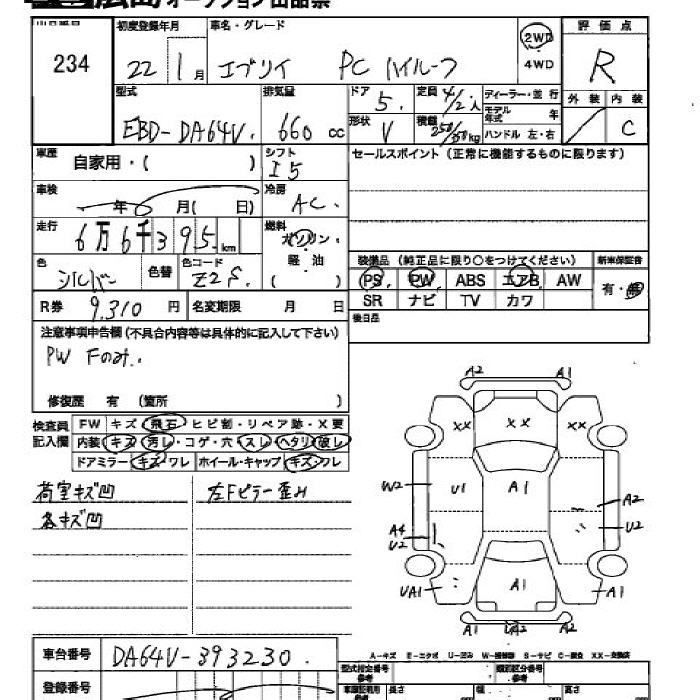 広島オークション出品票
出品番号 初度登録年月 車名・グレード 2WD 評価点
234 22 1月 エブリイ PC ハイルーフ 4WD R
型式 排気量 ドア 5. 定員 4/2人 ディーラー・並行 外装 内装
モデル年式 年
EBD-DA64V. 660 cc 形状 V 積載 250/350kg ハンドル 左・右 C
車歴 自家用・( ) シフト I5 セールスポイント(正常に機能するものに限ります)
車検 年 月( 日) 冷房 AC.
走行 6万6千395km 燃料 ガソリン・軽油 ( )
装備品(純正品に限り○をつけてください) 新車保証書
色 シルバー 色替 色コード Z2S. PS PW ABS エアB AW 有・無
R券 9,310円 名変期限 月 日 SR ナビ TV カワ
後日品
注意事項申告欄(不具合内容等は具体的に記入して下さい)
PW Fのみ.
修復歴 有 (箇所 )
検査員記入欄 FW キズ・飛石・ヒビ割・リペア跡・X要
内装 キズ・汚レ・コゲ・穴・スレ・ヘタリ・破レ
ドアミラー キズ・ワレ ホイール・キャップ キズ・ワレ
荷室キズ凹 左Fピラー歪み
各キズ凹
A2 A1
XX XX XX
W2 U1 A1 A2
U2
A4
U2
UA1 A1 A1
A1 UA2 A2
車台番号 DA64V-393230.
A-キズ E-エクボ U-凹み W-補修跡 S-サビ C-腐食 XX-交換済
登録番号 型式指定番号 参考 類別区分番号 参考
長さ 幅 高さ